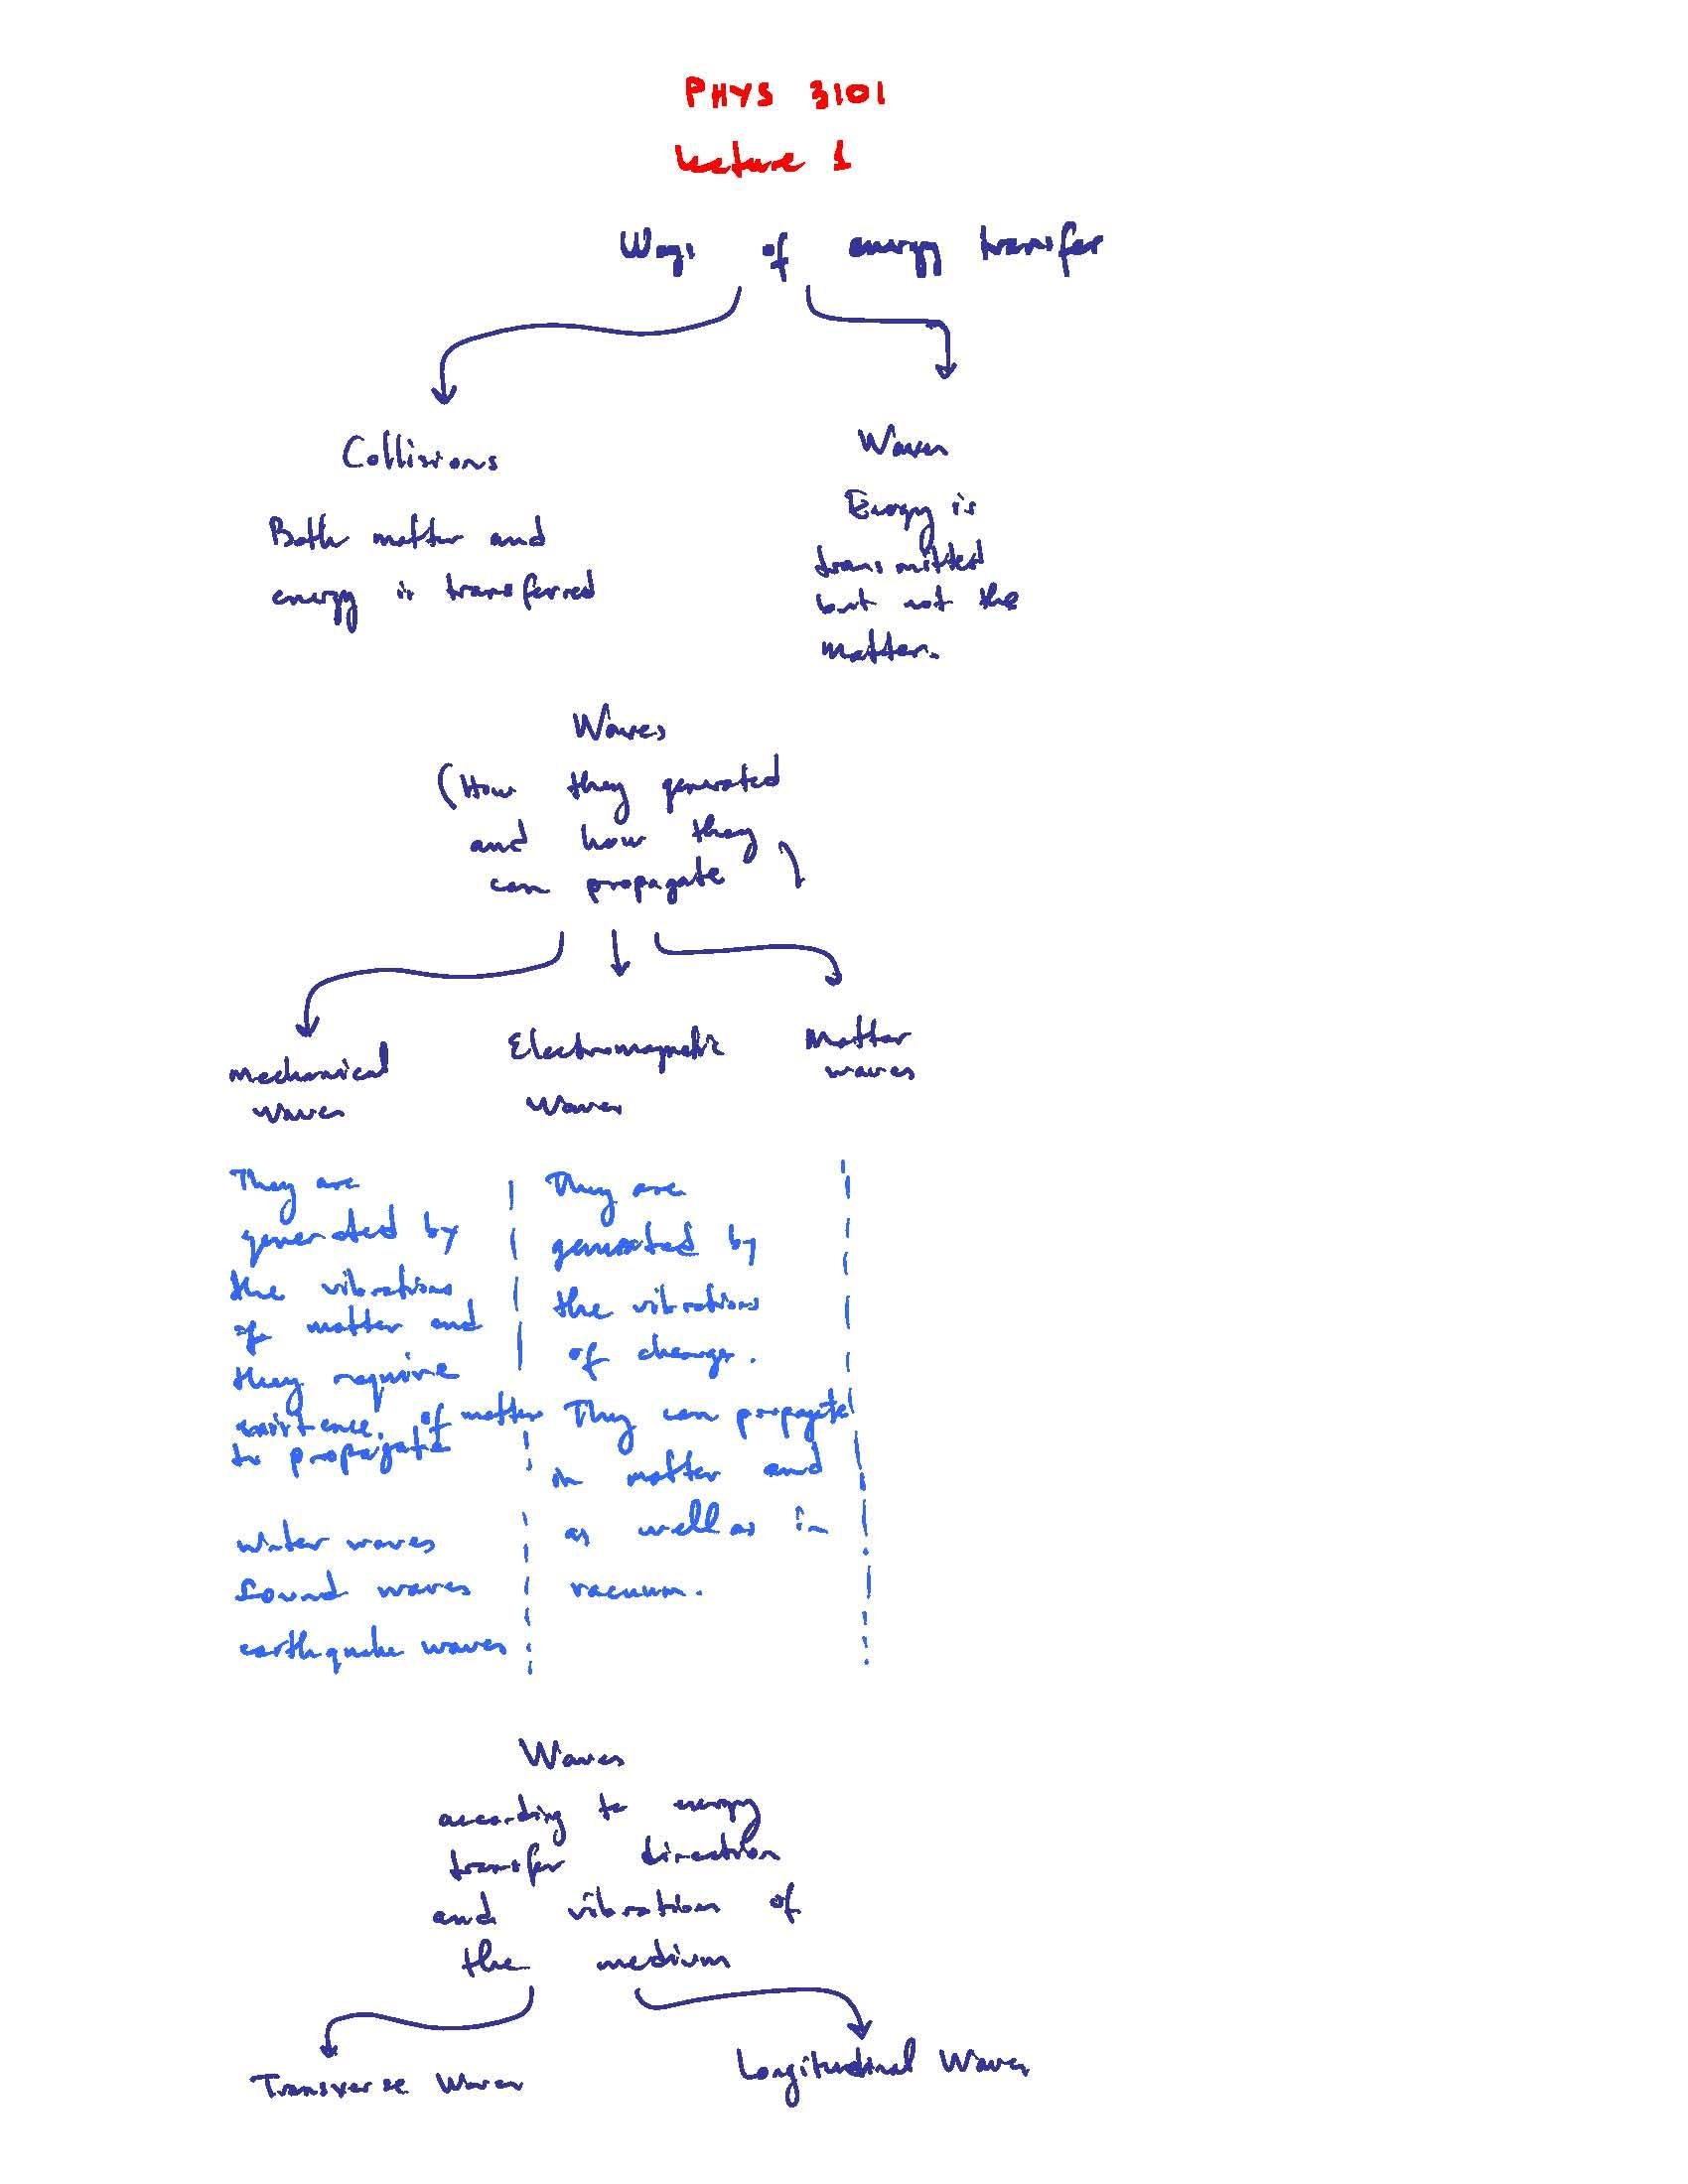 PHYS 3101
Lecture 1
Ways of energy transfer
Collisions
Both matter and
energy is transferred
Waves
Energy is
transmitted
but not the
matter.
Waves
(How they generated
and how they
can propagate)
Mechanical
waves
Electromagnetic
Waves
Matter
waves
They are
generated by
the vibrations
of matter and
they require
existence. of matter
to propagate
water waves
Sound waves
earthquake waves
They are
generated by
the vibrations
of charge.
They can propagate
in matter and
as well as in
vacuum.
Waves
according to energy
transfer direction
and vibration of
the medium
Transverse Waves
Longitudinal Waves